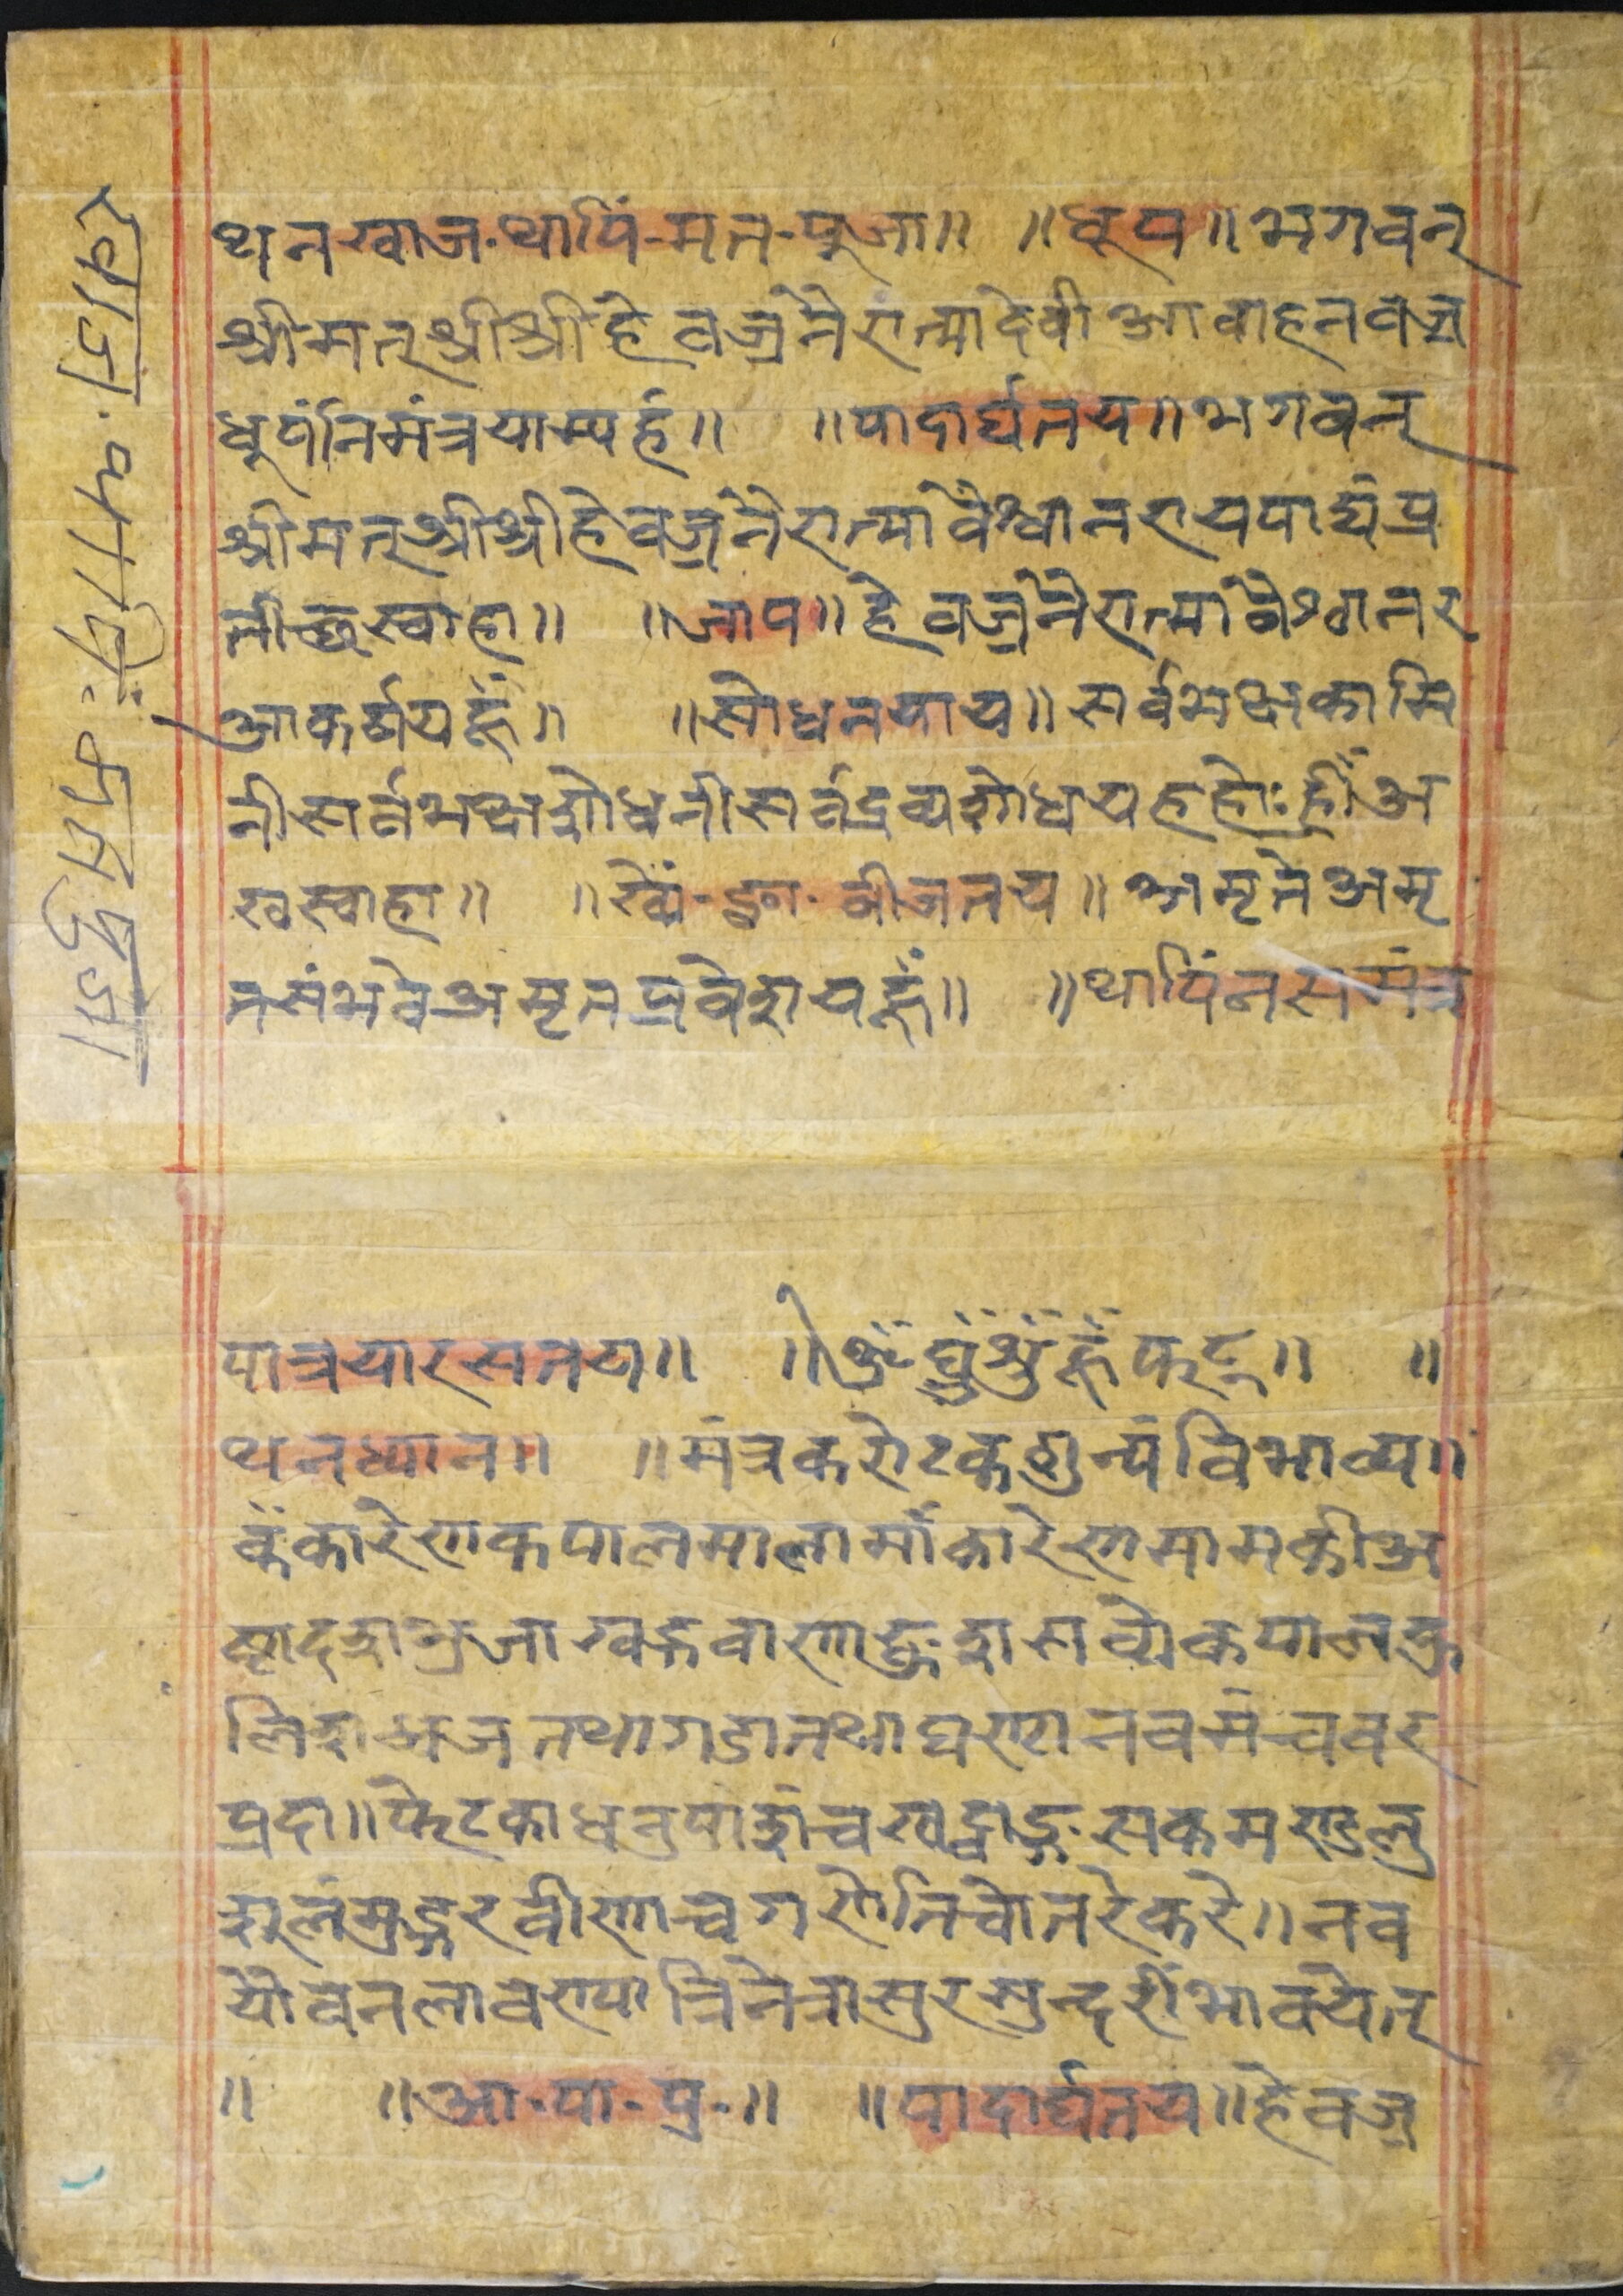 थन खाज·थापिं-मत-पूजा॥ ॥धूप॥भगवन्
श्रीमत्श्रीश्रीहेवज्रनैरात्मादेवीआवाहनवज्र
धूपंनिमंत्रयाम्यहं॥ ॥पादार्घतय॥भगवन्
श्रीमत्श्रीश्रीहेवज्रनैरात्मावैश्वानरायपाद्यंप्र
तीच्छस्वाहा॥ ॥जाप॥हेवज्रनैरात्मावैश्वानर
आकर्षयहूँ॥ ॥सोधनयाय॥सर्वभक्षकामि
नीसर्वभक्षशोधनीसर्वद्रव्यशोधयहहोःह्रीँअ
खस्वाहा॥ बीजतय॥अमृतेअमृ
तसंभवेअमृतप्रवेशयहूँ॥ ॥थापिंनसमंत्र
पात्रयारसतय॥ हूँफट्॥ ॥
थनध्यान॥ ॥मंत्रकरोटकशुन्यंविभाव्य॥
कँकारेणकपालमालामाँकारेणमामकीअ
ष्टादशभुजाखड्गवाणाङ्कुशसव्येकपालकु
लिशध्वजतथागदातथाघण्टानवमंचवर
प्रदा॥फेटकाधनुपाशंचखट्वाङ्गसकमण्डलु
शूलंमुद्गरवीणाचगणेतिचोतरेकरे॥नव
यौवनलावण्यात्रिनेत्रासुरसुन्दरीभावयेत्
॥ ॥आ·पा·प्र·॥ ॥पादार्घतय॥हेवज्र